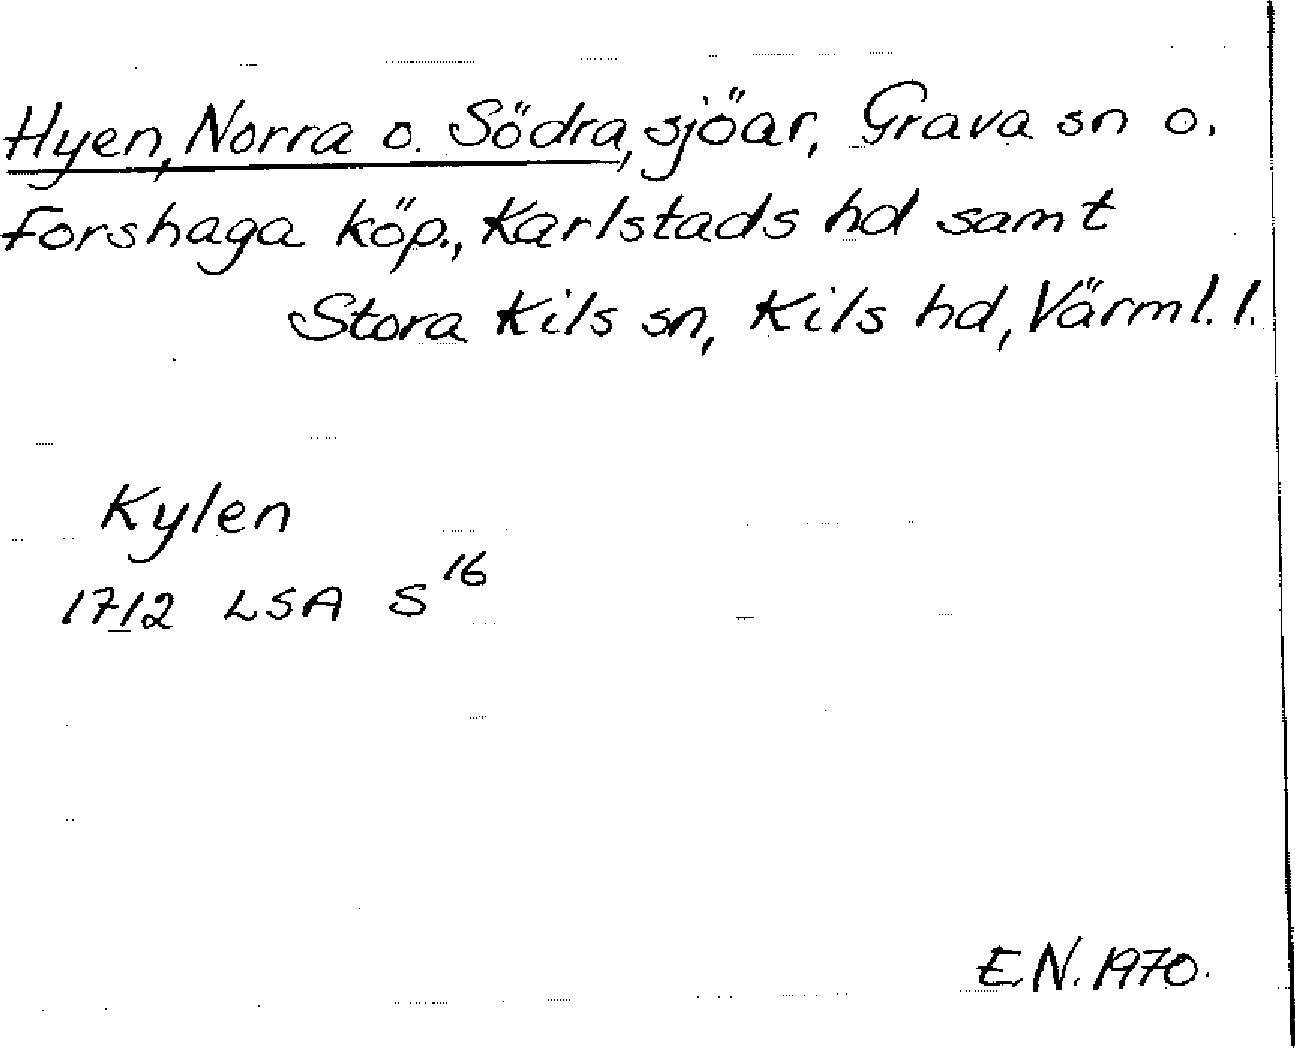 Hyen, Norra o. Södra, sjöar, Grava sn o.
Forshaga köp., Karlstads hd samt
Stora Kils sn, Kils hd, Värml. l.
Kylen
1712 LSA S 16
E.N. 1970.